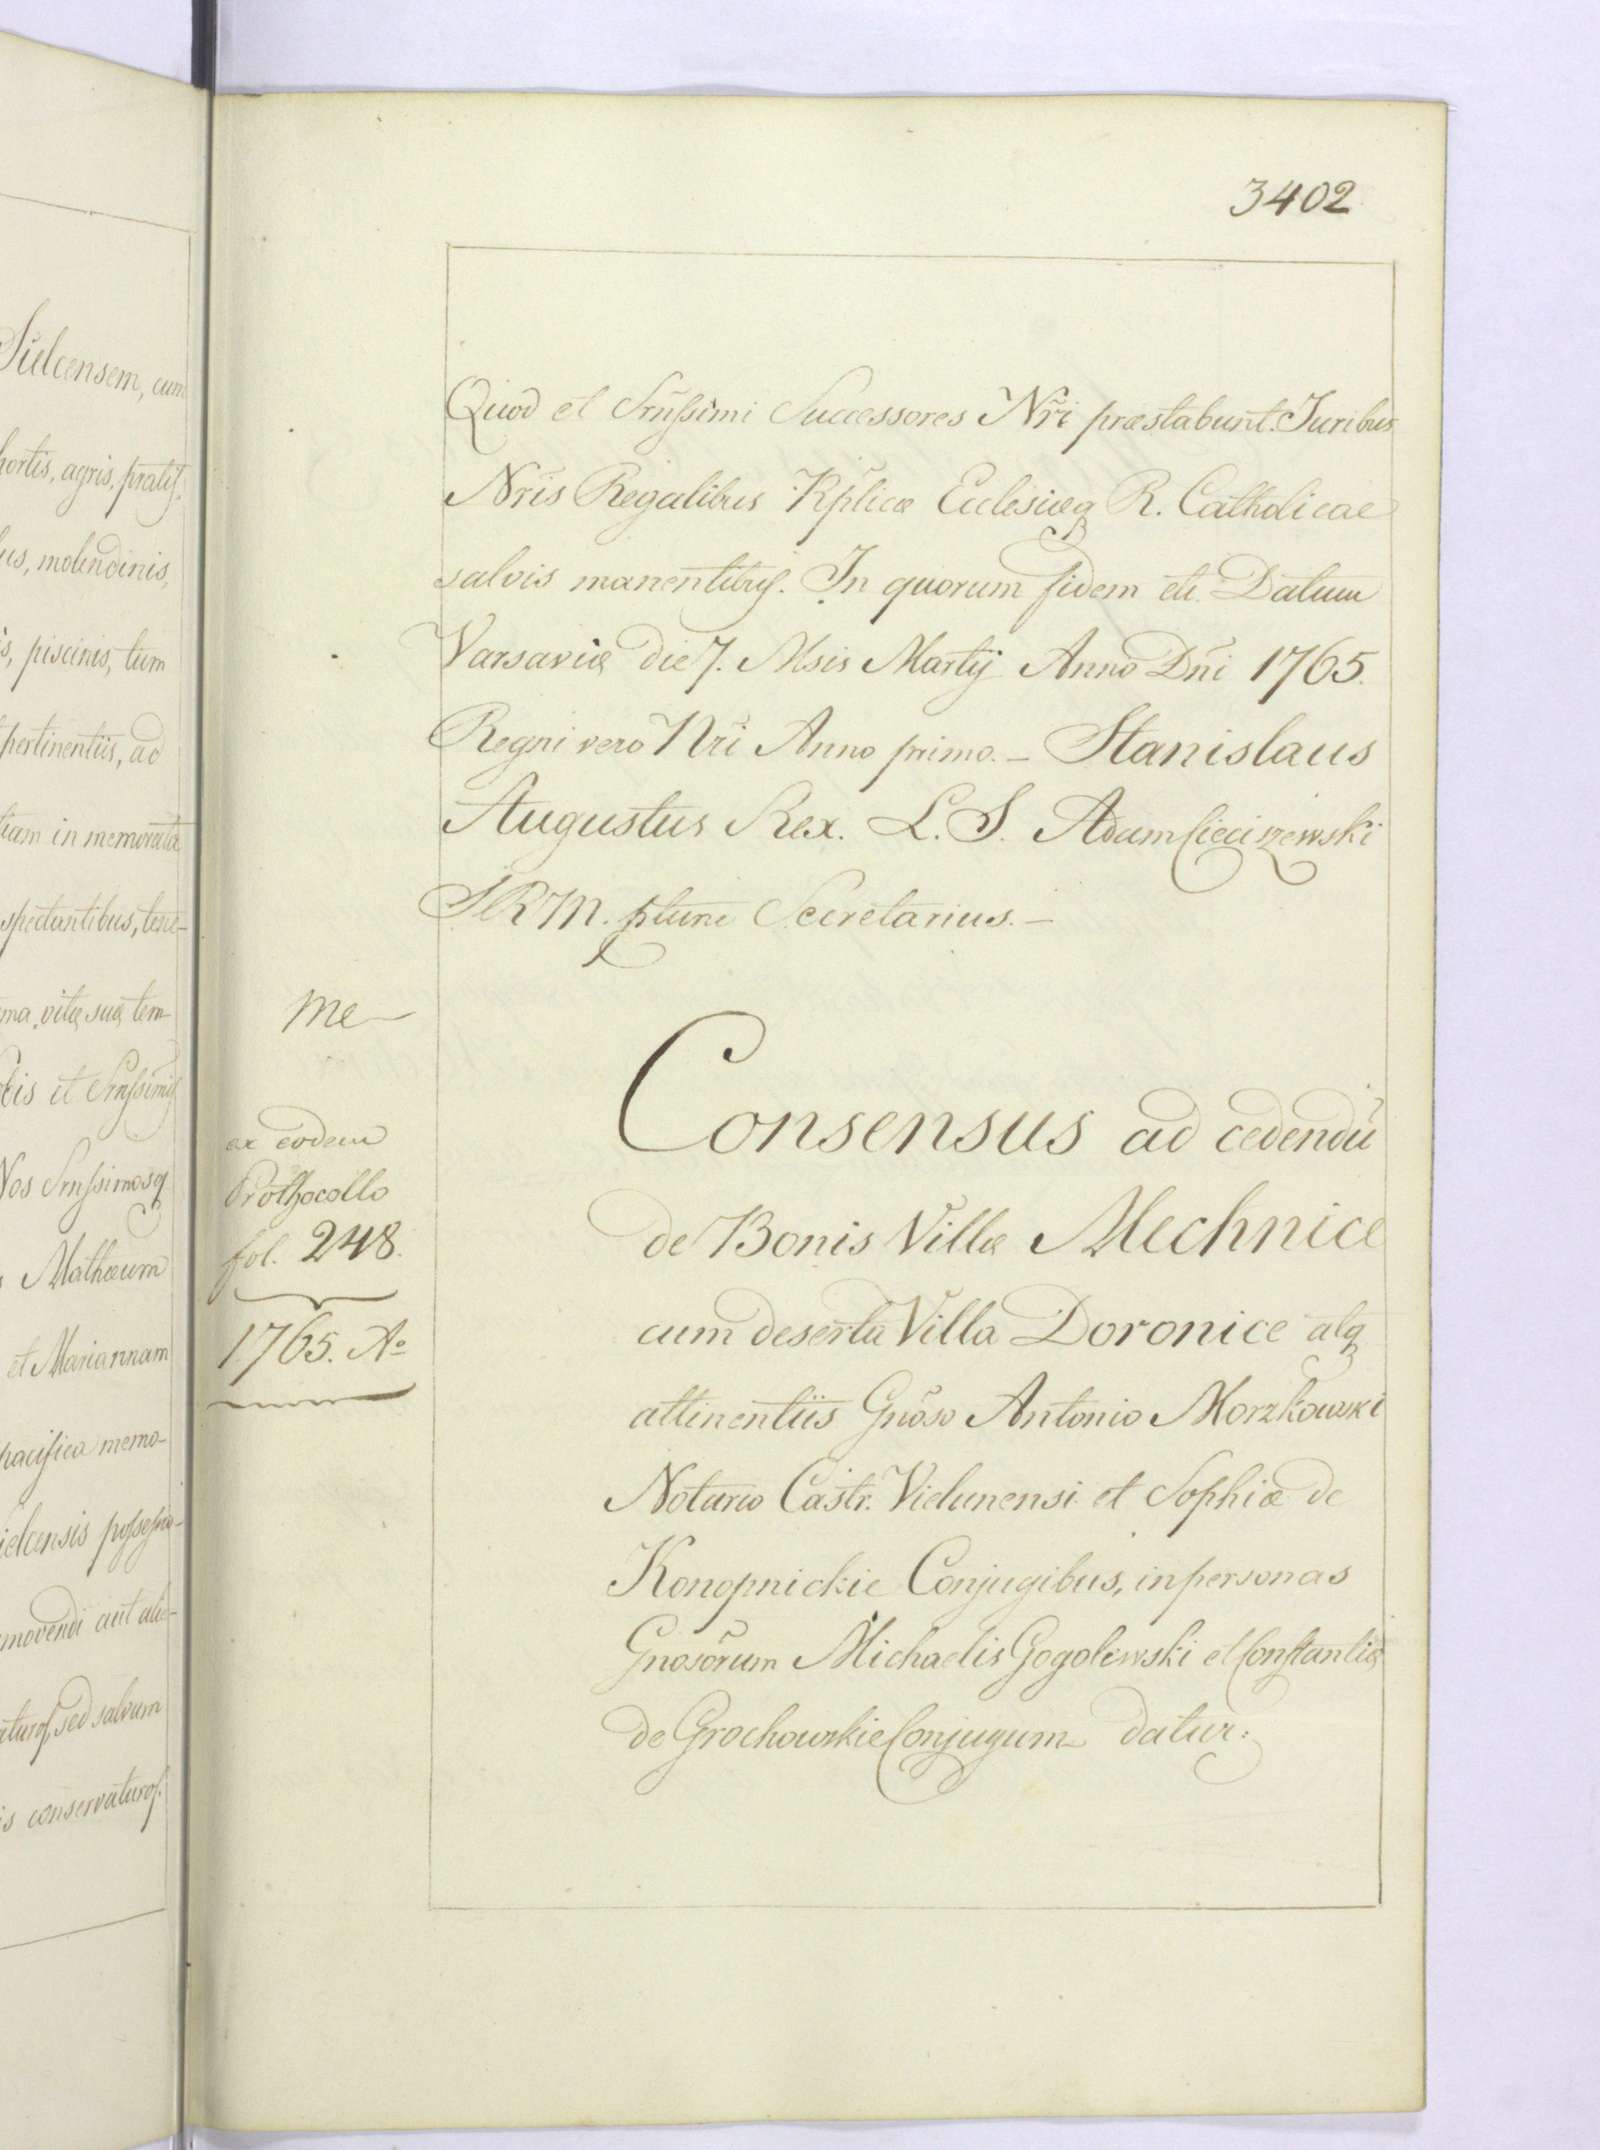 3402
Quod et Srñssimi Successores Nr̃i præstabunt. Juribus
Nr̃is Regalibus Rp̃licæ Ecclesiæq R. Catholicae
salvis manentibus. In quorum fidem etc. Datum
Varsaviæ die 7. Msis Martij Anno Dñi 1765.
Regni vero Nr̃i Anno primo. – Stanislaus
Augustus Rex. L. S. Adam Cieciszewski
S R M. Secretarius. –
Me
ex eodem
Prothocollo
fol. 248.
1765. Aº
Consensus ad cedendũ
de Bonis Villæ Mechnice
cum deserta Villa Doronice atq
attinentiis Gnõso Antonio Morzkowski
Notario Castr. Vielunensi et Sophiæ de
Konopnickie Conjugibus, in personas
Gnosõrum Michaelis Gogolewski et Constantiæ
de Grochowskie Conjugum datur:
Sielcensem, cum
hortis, agris, pratis,
molendinis,
piscinis, tum
pertinentiis, ad
in memorata
spectantibus, tene-
vitæ suæ tem-
et Srnssimis
Nos Srnssimosq
Mathæum
et Mariannam
pacifica memo-
possessio-
aut alie-
sed salvum
conservaturos.